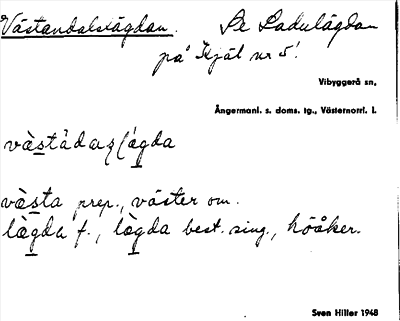 Västandalslägdan. Se Ladulägdan
på Kjäl nr 5!
Vibyggerå sn,
Ångermanl. s. doms. tg., Västernorrl. l.
västa prep., väster om.
lägda f., lägda best. sing., höåker.
Sven Hiller 1948